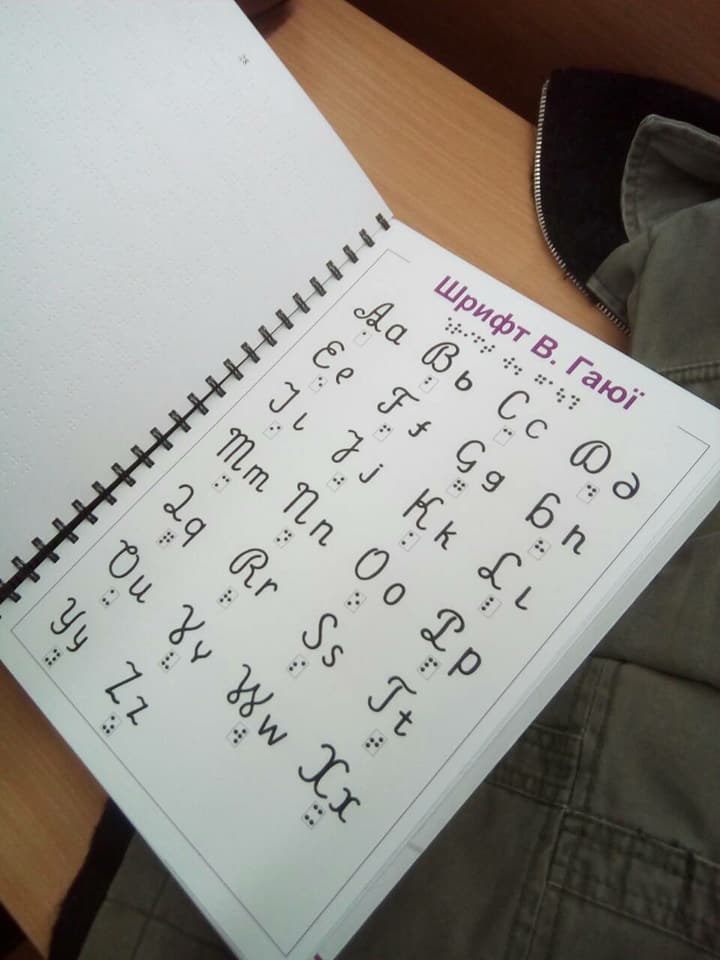 Шрифт В. Гаюї
Aa Bb Cc Dd
Ee Ff Gg Hh
Ii Jj Kk Ll
Mm Nn Oo Pp
Qq Rr Ss Tt
Uu Vv Ww Xx
Yy Zz